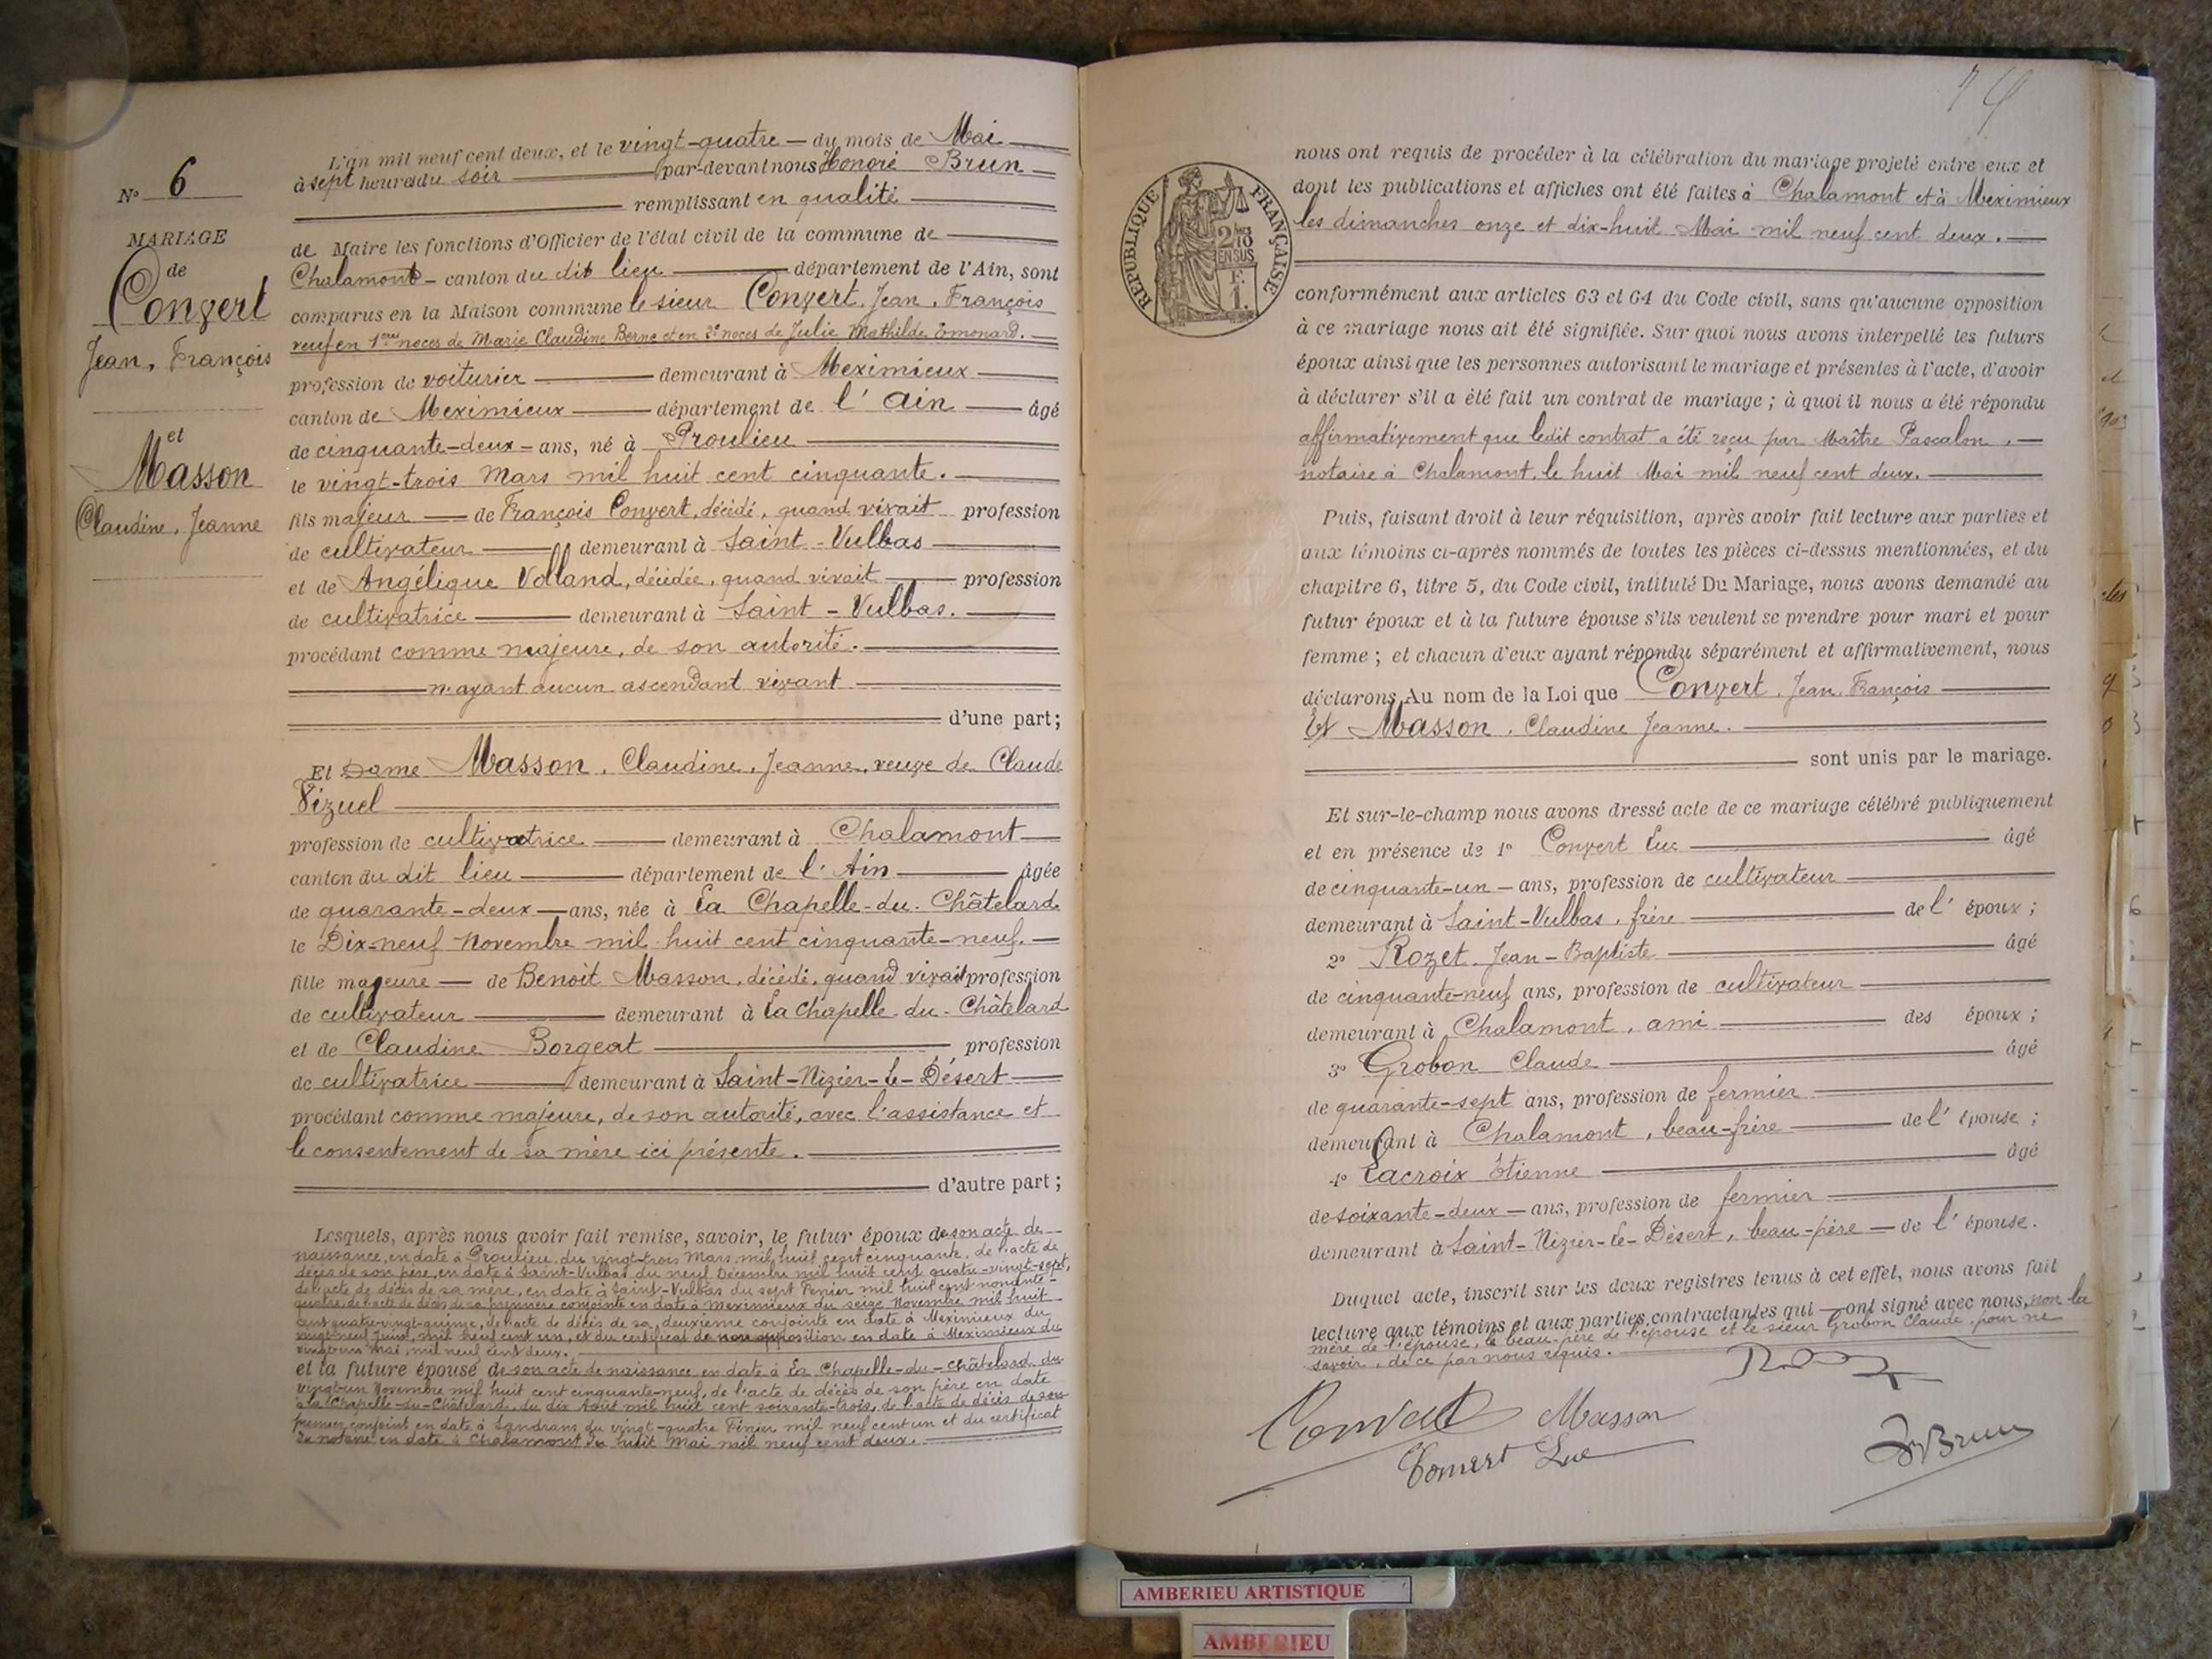 N° 6
MARIAGE
de
Convert
Jean, François
et
Masson
Claudine, Jeanne
L'an mil neuf cent deux, et le vingt-quatre — du mois de Mai
à sept heures du soir par-devant nous Honoré Brun
remplissant en qualité
de Maire les fonctions d'Officier de l'état civil de la commune de
Chalamont - canton du dit lieu département de l'Ain, sont
comparus en la Maison commune le sieur Convert, Jean, François
veuf en 1ères noces de Marie Claudine Berne et en 2e noces de Julie Mathilde Emonard.
profession de voiturier demeurant à Meximieux
canton de Meximieux département de l'Ain âgé
de cinquante-deux ans, né à Proulieu
le vingt-trois Mars mil huit cent cinquante.
fils majeur — de François Convert, décédé, quand vivait profession
de cultivateur demeurant à Saint-Vulbas
et de Angélique Volland, décédée, quand vivait profession
de cultivatrice demeurant à Saint-Vulbas.
procédant comme majeure, de son autorité.
n'ayant aucun ascendant vivant
d'une part;
Et Dame Masson, Claudine, Jeanne, veuve de Claude
Vizuel
profession de cultivatrice demeurant à Chalamont
canton du dit lieu département de l'Ain âgée
de quarante-deux — ans, née à La Chapelle-du-Châtelard
le Dix-neuf Novembre mil huit cent cinquante-neuf.
fille majeure — de Benoît Masson, décédé, quand vivait profession
de cultivateur demeurant à La Chapelle-du-Châtelard
et de Claudine Borgeat profession
de cultivatrice demeurant à Saint-Nizier-Le-Désert
procédant comme majeure, de son autorité, avec l'assistance et
le consentement de sa mère ici présente.
d'autre part;
Lesquels, après nous avoir fait remise, savoir, le futur époux de son acte de
naissance, en date à Proulieu du vingt-trois Mars mil huit cent cinquante, de l'acte de
décès de son père, en date à Saint-Vulbas du neuf Décembre mil huit cent quatre-vingt-sept,
de l'acte de décès de sa mère, en date à Saint-Vulbas du sept Février mil huit cent nonante-
quatre, de l'acte de décès de sa première conjointe en date à Meximieux du seize Novembre mil huit
cent quatre-vingt-quinze, de l'acte de décès de sa deuxième conjointe en date à Meximieux du
vingt-neuf Juin, mil neuf cent un, et du certificat de non opposition en date à Meximieux du
vingt-un Mai, mil neuf cent deux.
et la future épouse de son acte de naissance en date à La Chapelle-du-Châtelard du
vingt-un Novembre mil huit cent cinquante-neuf, de l'acte de décès de son père en date
à la Chapelle-du-Châtelard, du dix Août mil huit cent soixante-trois, de l'acte de décès de son
premier conjoint en date à Sandrans du vingt-quatre Février mil neuf cent un et du certificat
de notaire en date à Chalamont du huit Mai mil neuf cent deux.
REPUBLIQUE FRANÇAISE
2/10 EN SUS
1 F.
nous ont requis de procéder à la célébration du mariage projeté entre eux et
dont les publications et affiches ont été faites à Chalamont et à Meximieux
les dimanches onze et dix-huit Mai mil neuf cent deux.
conformément aux articles 63 et 64 du Code civil, sans qu'aucune opposition
à ce mariage nous ait été signifiée. Sur quoi nous avons interpellé les futurs
époux ainsi que les personnes autorisant le mariage et présentes à l'acte, d'avoir
à déclarer s'il a été fait un contrat de mariage; à quoi il nous a été répondu
affirmativement que ledit contrat a été reçu par Maître Pascalon,
notaire à Chalamont, le huit Mai mil neuf cent deux.
Puis, faisant droit à leur réquisition, après avoir fait lecture aux parties et
aux témoins ci-après nommés de toutes les pièces ci-dessus mentionnées, et du
chapitre 6, titre 5, du Code civil, intitulé Du Mariage, nous avons demandé au
futur époux et à la future épouse s'ils veulent se prendre pour mari et pour
femme; et chacun d'eux ayant répondu séparément et affirmativement, nous
déclarons Au nom de la Loi que Convert, Jean, François
Et Masson, Claudine Jeanne.
sont unis par le mariage.
Et sur-le-champ nous avons dressé acte de ce mariage célébré publiquement
et en présence de 1° Convert Luc âgé
de cinquante-un — ans, profession de cultivateur
demeurant à Saint-Vulbas, frère de l'époux;
2° Rozet Jean-Baptiste âgé
de cinquante-neuf ans, profession de cultivateur
demeurant à Chalamont, ami des époux;
3° Grobon Claude âgé
de quarante-sept ans, profession de fermier
demeurant à Chalamont, beau-frère de l'épouse;
4° Lacroix Etienne âgé
de soixante-deux — ans, profession de fermier
demeurant à Saint-Nizier-Le-Désert, beau-père — de l'épouse.
Duquel acte, inscrit sur les deux registres tenus à cet effet, nous avons fait
lecture aux témoins et aux parties contractantes qui — ont signé avec nous, non la
mère de l'épouse, le beau-père de l'épouse et le sieur Grobon Claude, pour ne
savoir, de ce par nous requis.
Convert Masson
Convert Luc
Brun
AMBERIEU ARTISTIQUE
AMBERIEU